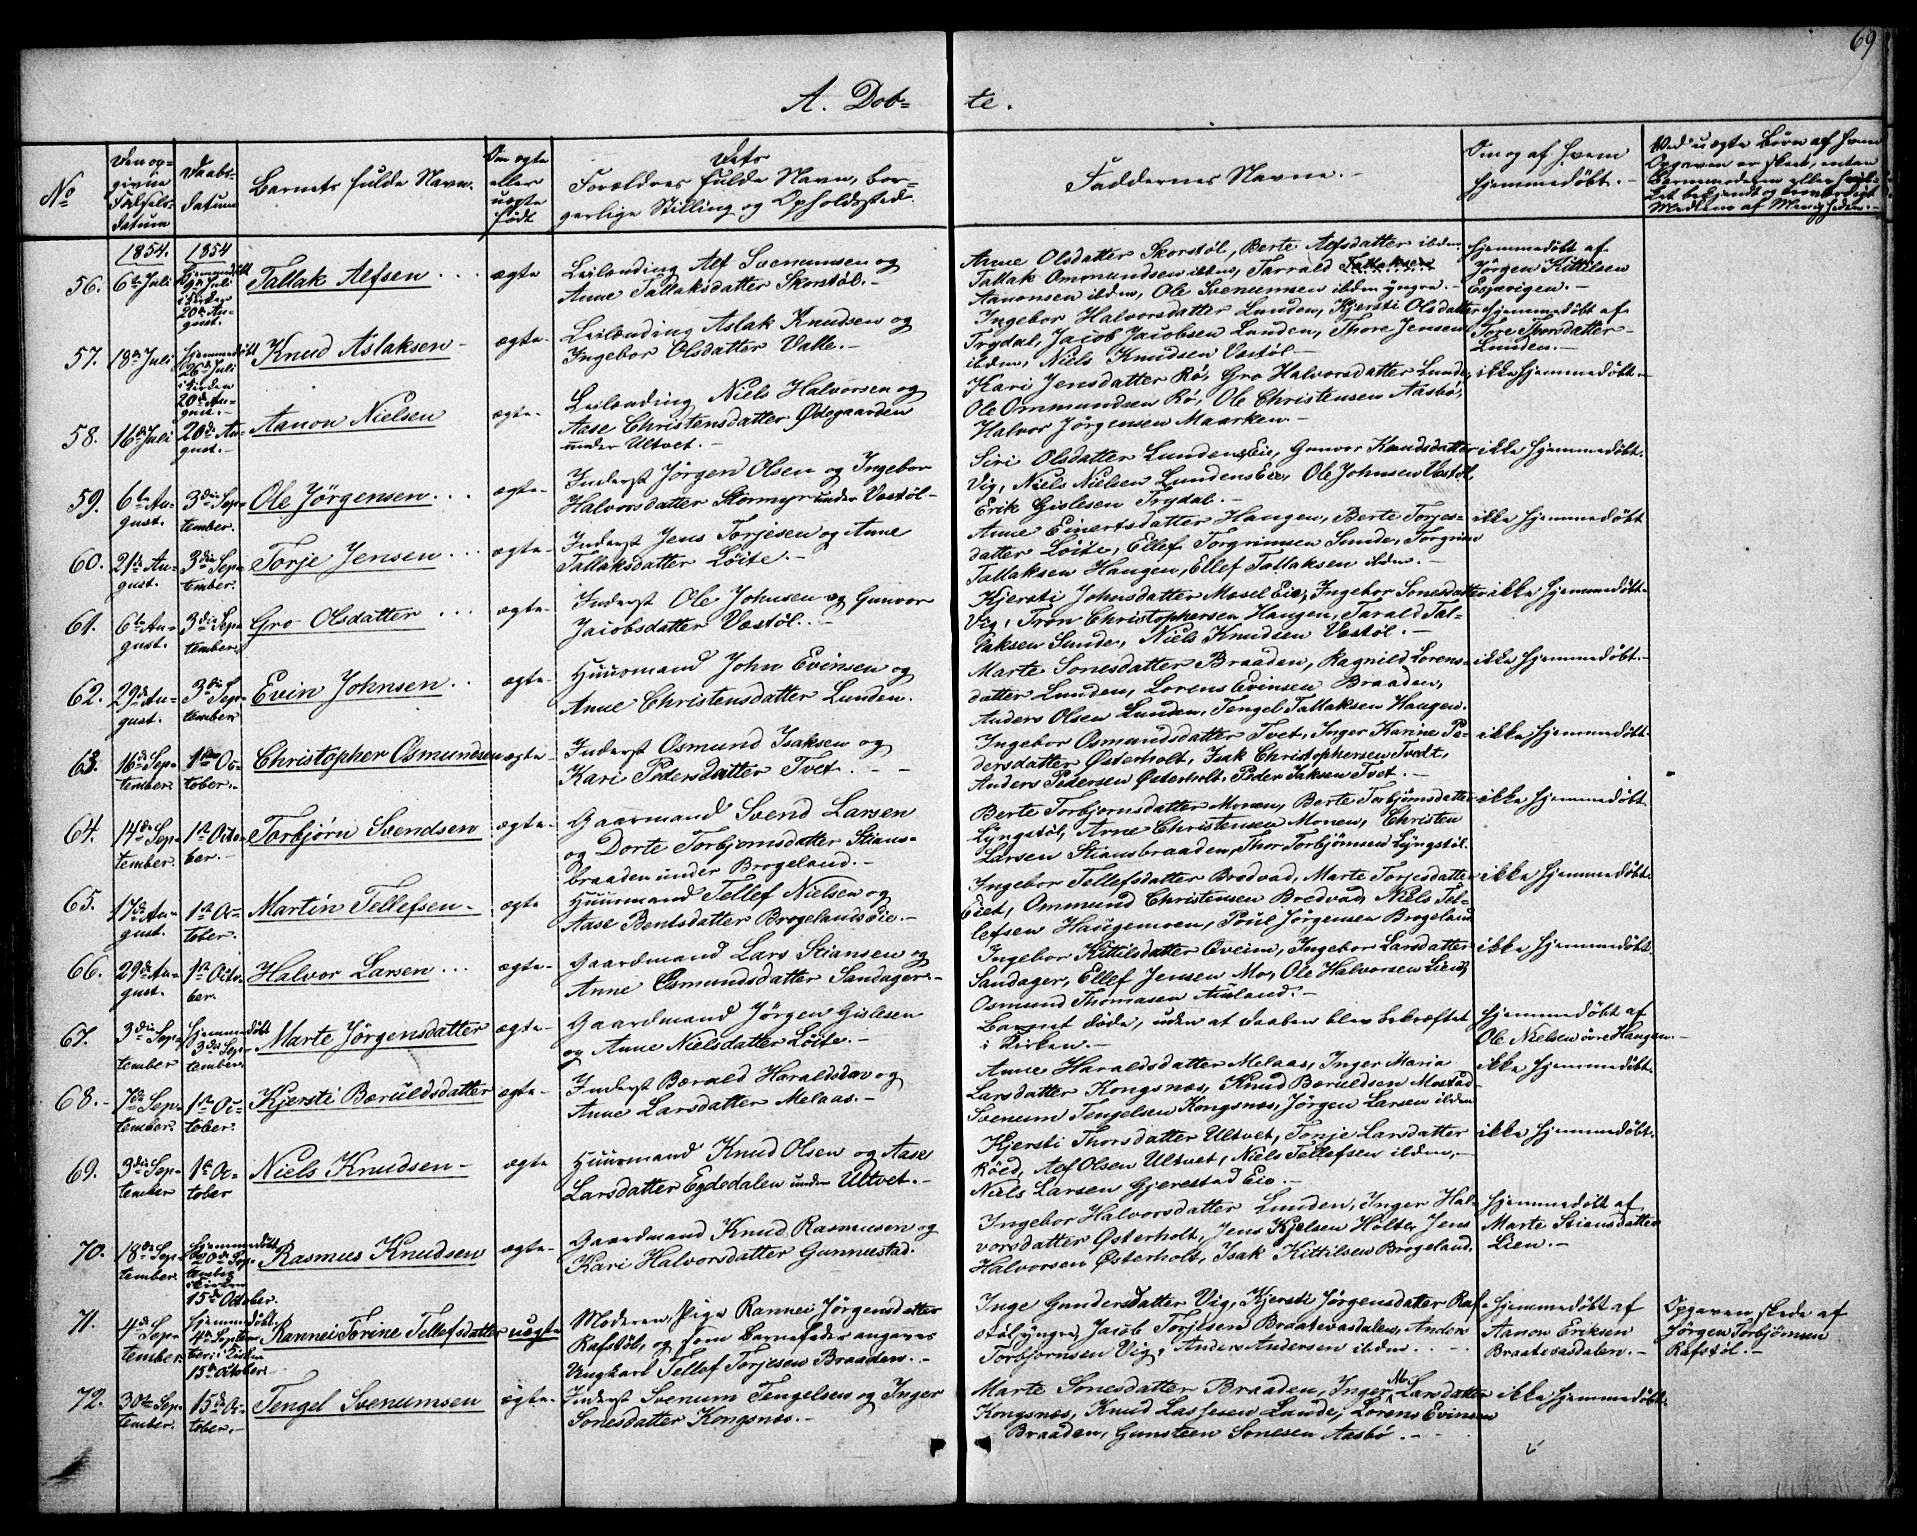 69
A. Döb= te.
No
Den op=
givne
Fødsels=
datum
Daabs=
datum
Barnets fulde Navn.
Om ægte
eller
uægte
født
Dets
Forældres fulde Navn, bor=
gerlige Stilling og Opholdssted.
Faddernes Navne.
Om og af hvem
hjemmedøbt.
Ved uægte Børn af hvem
Opgaven er skeet, enten
Barnemoderen eller
Let bekjendt og troværdigt
Medlem af Menigheden.
56.
1854.
6te Juli
1854
Hjemmedøbt
9de Juli
i Kirken
20de Au-
gust.
Tallak Alfsen
ægte
Leilending Alf Svenumsen og
Anne Tallaksdatter Skorstøl.
Anne Olsdatter Skorstøl, Berte Alfsdatter ibdm
Tallak Ommundsen ibdm, Tarrald Tallaksen
Aanonsen ibdm, Ole Svenumsen ibdm yngre.
Hjemmedøbt af
Jörgen Kittilsen
Espevigen.
57.
18de Juli
Hjemmedøbt
26de Juli
i Kirken
20de Au-
gust.
Knud Aslaksen
ægte
Leilending Aslak Knudsen og
Ingebor Olsdatter Valle.
Ingebor Halvorsdatter Lunden, Kjersti Olsdatter
Trydal, Jacob Jacobsen Lunden, Thore Jensen
ibdm, Niels Knudsen Vestøl
Hjemmedøbt af
Tore Thorsdatter
Lunden.
58.
16de Juli
20de Au-
gust.
Aanon Nielsen
ægte
Leilending Niels Halvorsen og
Aase Christensdatter Ødegaarden
under Ultvet.
Kari Jensdatter Rö, Gro Halvorsdatter Lunde,
Ole Ommundsen Rö, Ole Christensen Aasbö,
Halvor Jörgensen Maarken.
ikke hjemmedøbt.
59.
6te Au-
gust.
3die Sep-
tember.
Ole Jörgensen
ægte
Inderst Jörgen Olsen og Ingebor
Halvorsdatter Stormyr under Vestøl
Siri Olsdatter Lundens Eie, Gunvor Knudsdatter
Vig, Niels Nielsen Lundens Eie, Ole Johnsen Vestøl,
Erik Gislesen Trydal.
ikke hjemmedøbt.
60.
21de Au-
gust.
3die Sep-
tember.
Torje Jensen
ægte
Inderst Jens Torjesen og Anne
Tallaksdatter Löite.
Anne Einertsdatter Haugen, Berte Torjes-
datter Löite, Ellef Torgrimsen Sunde, Torgrim
Tallaksen Haugen, Ellef Tallaksen ibdm.
ikke hjemmedøbt
61.
6te Au-
gust.
3die Sep-
tember.
Gro Olsdatter
ægte
Inderst Ole Johnsen og Gunvor
Jacobsdatter Vestøl.
Kjersti Johnsdatter Mosel Eie, Ingebor Sonesdatter
Vig, Tron Christophersen Haugen, Tarald Tal-
laksen Sunde, Niels Knudsen Vestøl.
ikke hjemmedøbt
62.
29de Au-
gust.
3die Sep-
tember.
Evin Johnsen
ægte
Huusmand John Evinsen og
Anne Christensdatter Lunden.
Marte Sonesdatter Braaden, Ragnild Lorens-
datter Lunden, Lorens Evinsen Braaden,
Anders Olsen Lunden, Tengel Tallaksen Haugen.
ikke hjemmedøbt
63.
16de Sep-
tember.
1ste Oc-
tober.
Christopher Osmundsen
ægte
Inderst Osmund Isaksen og
Kari Pedersdatter Tvet.
Ingebor Osmundsdatter Tvet, Inger Karine Pe-
dersdatter Østerholt, Isak Christophersen Tvedt,
Anders Pedersen Østerholt, Peder Isaksen Tvet.
ikke hjemmedøbt
64.
14de Sep-
tember.
1ste Octo-
ber.
Torbjörn Svendsen
ægte
Gaarmand Svend Larsen
og Dorte Torbjornsdatter Stians-
braaden under Brogeland.
Berte Torbjornsdatter Monen, Berte Torbjörnsdatter
Lyngstøl, Arne Christensen Monen, Christen
Larsen Stiansbraaden, Thor Torbjörnsen Lyngstøl.
ikke hjemmedøbt
65.
17de Au-
gust.
1ste Oc-
tober.
Martin Tellefsen
ægte
Huusmand Tellef Nielsen og
Aase Bentsdatter Brogelands Eie.
Ingebor Tellefsdatter Bredvad, Marte Torjesdatter
Eiet, Ommund Christensen Bredvad, Niels Tel-
lefsen Haugemoen, Poul Jörgensen Brogeland
ikke hjemmedøbt
66.
29de Au-
gust.
1ste Octo-
ber.
Halvor Larsen
ægte
Gaardmand Lars Stiansen og
Anne Osmundsdatter Sandager.
Ingebor Kittilsdatter Qveim, Ingebor Larsdatter
Sandager, Ellef Jensen Mo, Ole Halvorsen Lien,
Osmund Thomasen Ausland.
ikke hjemmedøbt.
67.
3die Sep-
tember
Hjemmedøbt
3die Sep-
tember.
Marte Jörgensdatter
ægte
Gaardmand Jörgen Gislesen
og Anne Nielsdatter Löite.
Barnet døde, uden at Daaben blev bekræftet
i Kirken.
Hjemmedøbt af
Ole Nielsen øvre Haugen.
68.
7de Sep-
tember.
1ste Oc-
tober.
Kjersti Bæruldsdatter
ægte
Inderst Bærald Haraldsen og
Anne Larsdatter Melaas.
Anne Haraldsdatter Melaas, Inger Maria
Larsdatter Kongsnæs, Knud Bæruldsen Mostad
Svenum Tengelsen Kongsnæs, Jörgen Larsen ibdm
ikke hjemmedøbt.
69.
3die Sep-
tember
1ste Oc-
tober
Niels Knudsen
ægte
Huusmand Knud Olsen og Aase
Larsdatter Egdedalen under Ultvet.
Kjersti Thorsdatter Ultvet, Tonje Larsdatter
Röed, Alf Olsen Ultvet, Niels Tellefsen ibdm,
Niels Larsen Gjerestad Eie.
ikke hjemmedøbt.
70.
18de Sep-
tember.
Hjemmedøbt
20de Sep-
tember
i Kirken
15de October.
Rasmus Knudsen
ægte
Gaardmand Knud Rasmusen og
Kari Halvorsdatter Gunnestad.
Ingebor Halvorsdatter Lunden, Inger Hal-
vorsdatter Østerholt, Jens Kjelsen Holte, Jens
Halvorsen Østerholt, Isak Kittilsen Brogeland.
Hjemmedøbt af
Marte Stiansdatter
Lien.
71.
4de
Sep-
tember
Hjemmedøbt
4de Septem-
ber i Kirken
15de October.
Rannei Torine Tellefsdatter
uægte
Moderen, Pige Rannei Jörgensdatter
Rafstøl, og som Barnefader angaves
Ungkarl Tellef Torjesen Braaden.
Inge Gundersdatter Vig, Kjersti Jörgensdatter Raf-
støl yngre, Jacob Torjesen Braatevasdalen, Anders
Torbjornsen Vig, Anders Andersen ibdm.
Hjemmedøbt af
Aanon Eriksen
Braatevasdalen.
Opgaven skede af
Jörgen Torbjörnsen
Rafstøl.
72.
30te Sep-
tember.
15de Oc-
tober.
Tengel Svenumsen
ægte
Inderst Svenum Tengelsen og Inger
Sonesdatter Kongsnæs.
Marte Sonesdatter Braaden, Inger M. Larsdatter
Kongsnæs, Knud Lassesen Lunde, Lorens Evinsen
Braaden, Gunsteen Sonesen Aasbö.
ikke hjemmedøbt.